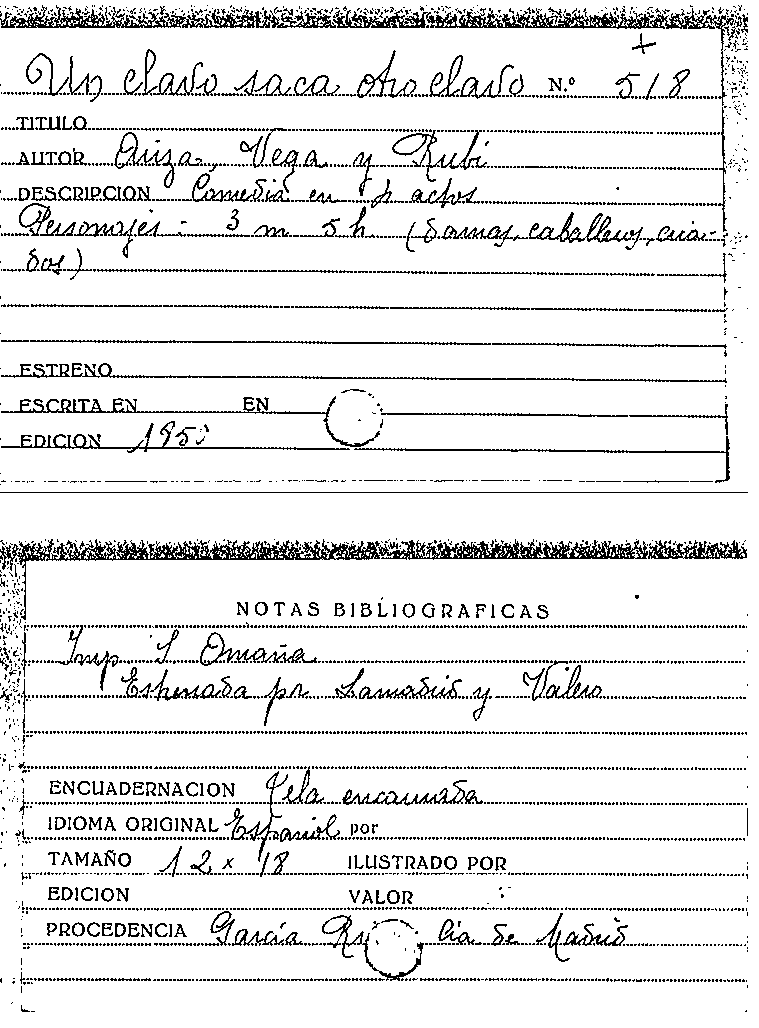 +
Un clavo saca otro clavo N.º 518
TITULO
AUTOR Ariza, Vega y Rubi
DESCRIPCION Comedia en actos
Personajes - 3 m 5 h (damas, caballeros, cria-
dos)
ESTRENO
ESCRITA EN EN
EDICION 1850
NOTAS BIBLIOGRAFICAS
Imp S. Omaña
Estrenada por Lamadrid y Valero
ENCUADERNACION Tela encarnada
IDIOMA ORIGINAL Español por
TAMAÑO 12 x 18 ILUSTRADO POR
EDICION VALOR
PROCEDENCIA García de Madrid